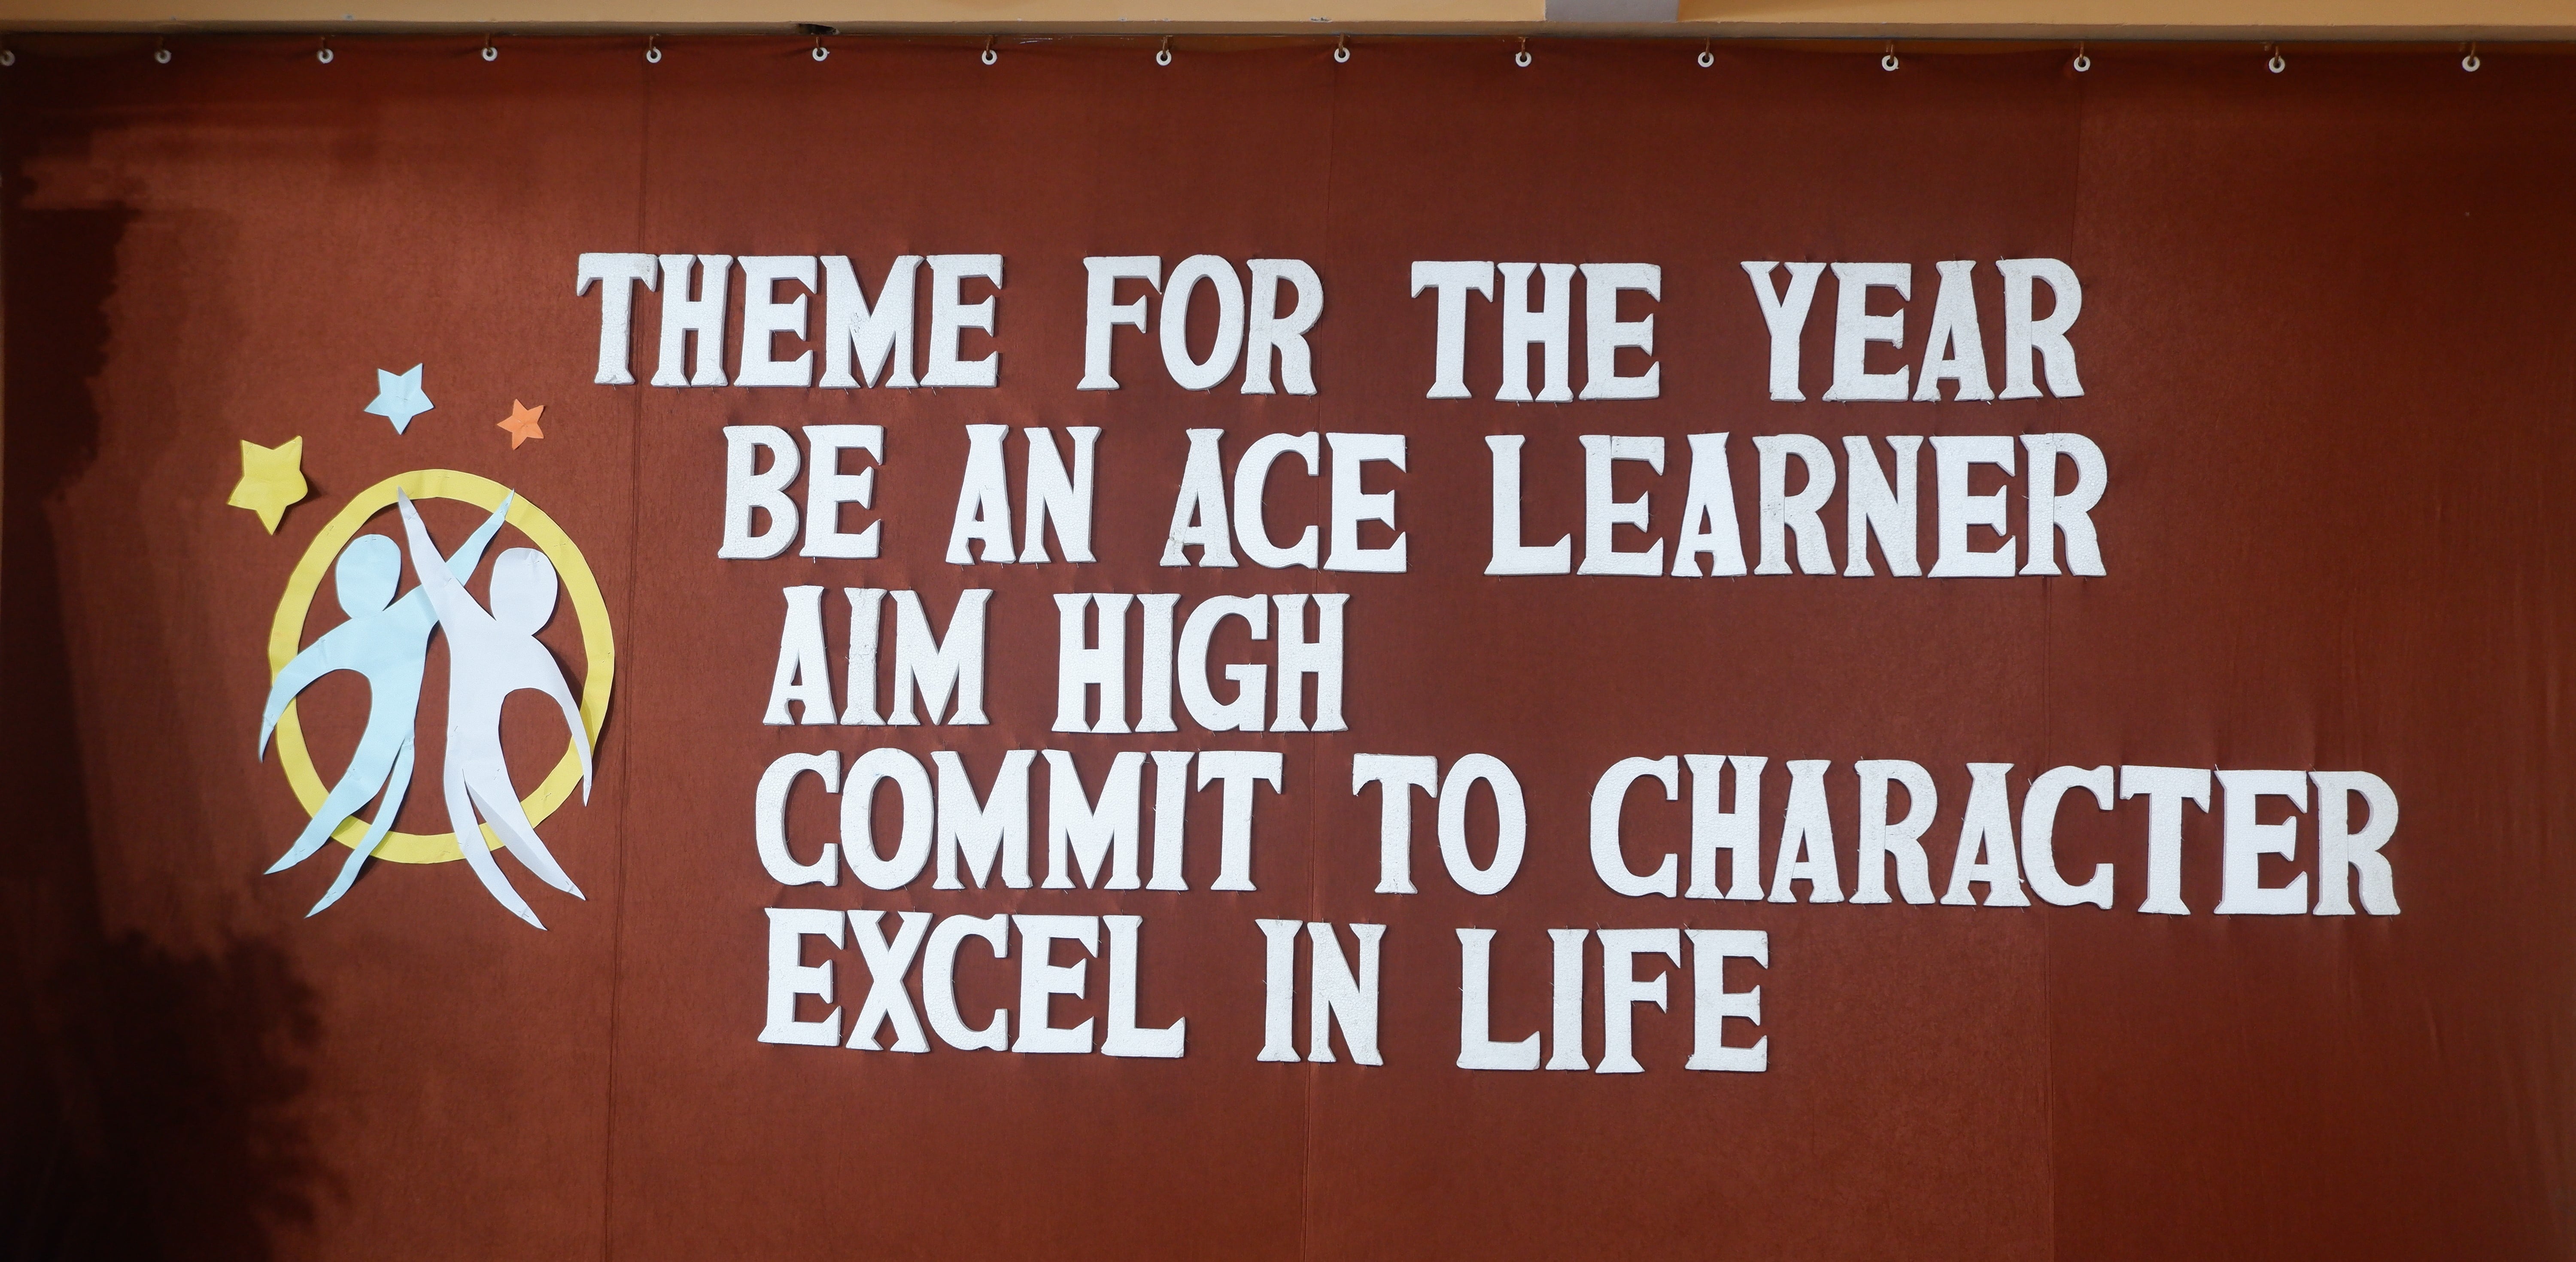 THEME FOR THE YEAR
BE AN ACE LEARNER
AIM HIGH
COMMIT TO CHARACTER
EXCEL IN LIFE